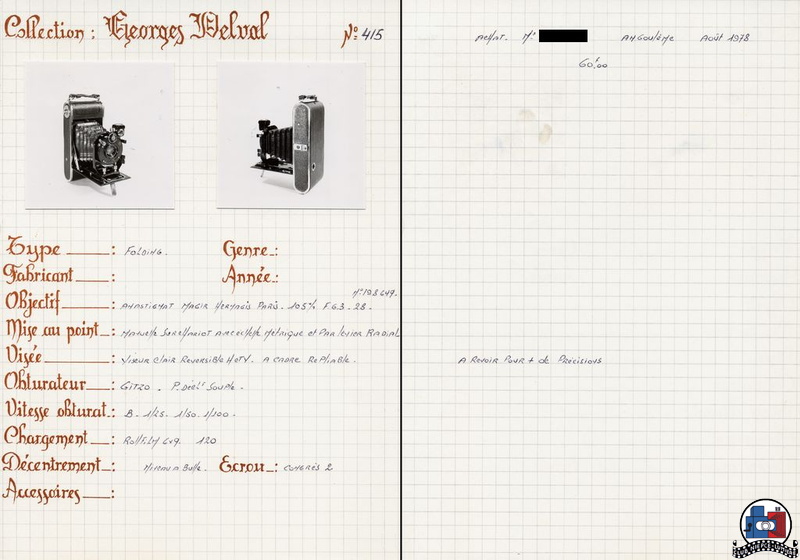 Collection : Georges Delval
No: 415
Type : Folding.
Genre :
Fabricant :
Année :
No 198649.
Objectif : Anastigmat Magir Hermagis Paris. 105% F.6.3-28.
Mise au point : Manuelle sur chariot avec échelle Métrique et Par levier Radial
Visée : Viseur clair Reversible H et V. A cadre Repliable.
Obturateur : Gitzo. P. Décl. Souple.
Vitesse obturat. : B. 1/25. 1/50. 1/100.
Chargement : Rollfilm 6x9. 120
Décentrement : Niveau a Bulle. Ecrou : Congrès 2
Accessoires :
Achat. Mr Angoulême Août 1978
60f00
A Revoir Pour + de Précisions